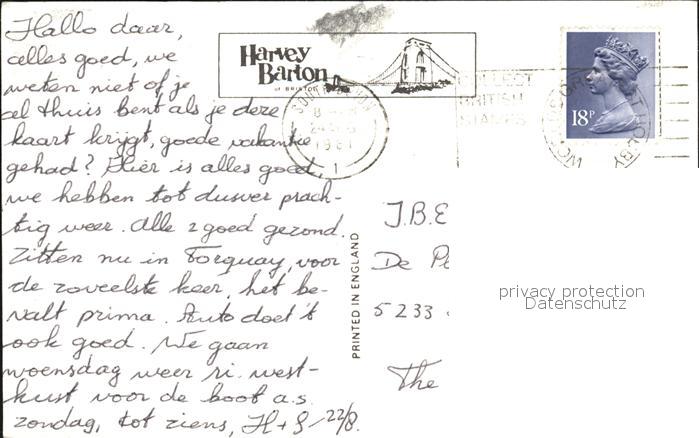 Hallo daar,
alles goed, we
weten niet of je
al thuis bent als je deze
kaart krijgt, goede vakantie
gehad? Hier is alles goed,
we hebben tot dusver prach-
tig weer. Alle 2 goed gezond.
Zitten nu in Torquay, voor
de zoveelste keer, het be-
valt prima. Auto doet 't
ook goed. We gaan
woensdag weer ri. west-
kust voor de boot a.s.
zondag, tot ziens, H+S 22/8.
Harvey
Barton
OF BRISTOL
1981
1
COLLECT
BRITISH
STAMPS
18P
PRINTED IN ENGLAND
J.B.E
De Pe
5233
The
privacy protection
Datenschutz